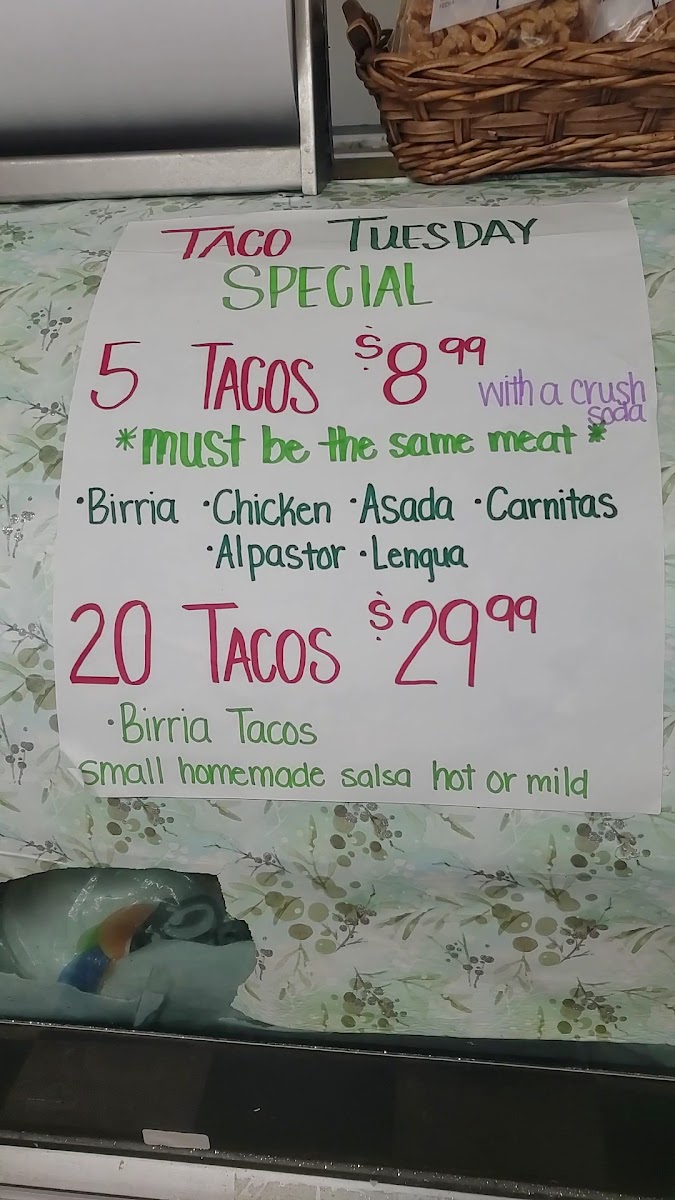 TACO TUESDAY
SPECIAL
5 TACOS $8.99 with a crush
soda
*must be the same meat*
·Birria ·Chicken ·Asada ·Carnitas
·Alpastor ·Lengua
20 TACOS $29.99
·Birria Tacos
small homemade salsa hot or mild